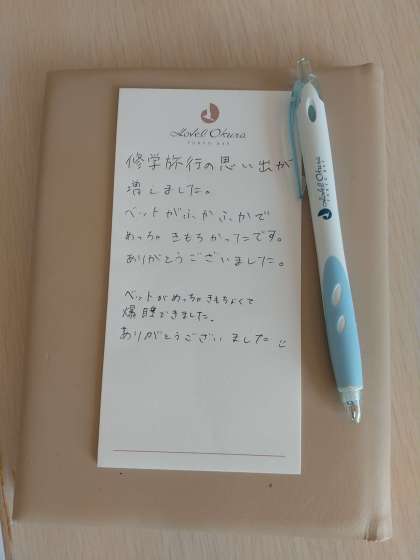 Hotel Okura
TOKYO BAY
修学旅行の思い出が
増しました。
ベットがふかふかで
めっちゃきもちかったです。
ありがとうございました。
ベットがめっちゃきもちよくて
爆睡できました。
ありがとうございました
Hotel Okura
TOKYO BAY